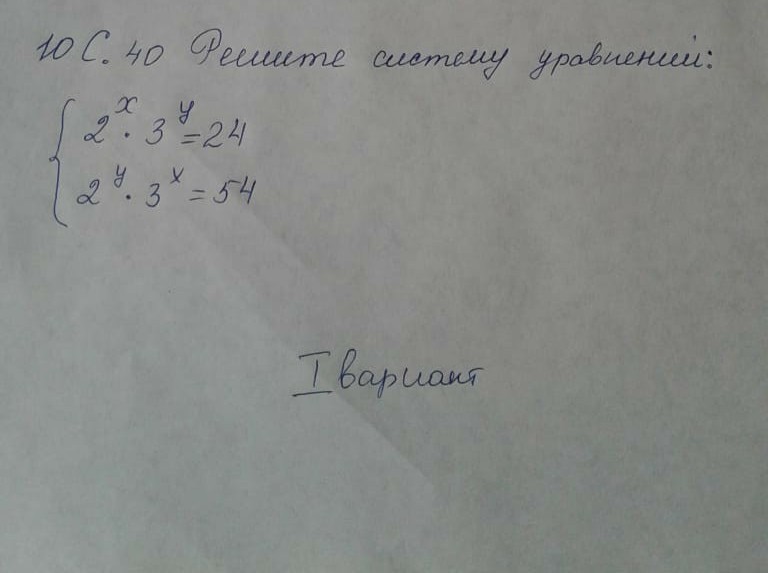 10 С. 40 Решите систему уравнений:
2^x · 3^y = 24
2^y · 3^x = 54
I вариант